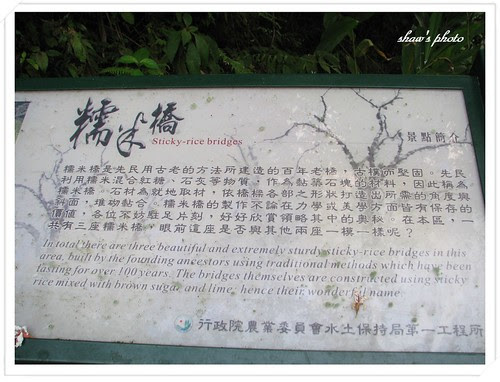 shaw's photo
糯米橋
Sticky-rice bridges
景點簡介
糯米橋是先民用古老的方法所建造的百年老橋，古樸而堅固。先民
利用糯米混合紅糖、石灰等物質，作為黏築石塊的材料，因此稱為
糯米橋。石材為就地取材，依橋樑各部之形狀打造出所需的角度與
斜面，堆砌黏合。糯米橋的製作不論在力學或美學方面皆有保存的
價值，各位不妨駐足片刻，好好欣賞領略其中的奧秋。在本區，一
共有三座糯米橋，眼前這座是否與其他兩座一模一樣呢？
In total there are three beautiful and extremely sturdy sticky-rice bridges in this
area, built by the founding ancestors using traditional methods which have been
lasting for over 100 years. The bridges themselves are constructed using sticky
rice mixed with brown sugar and lime, hence their wonderful name.
行政院農業委員會水土保持局第一工程所